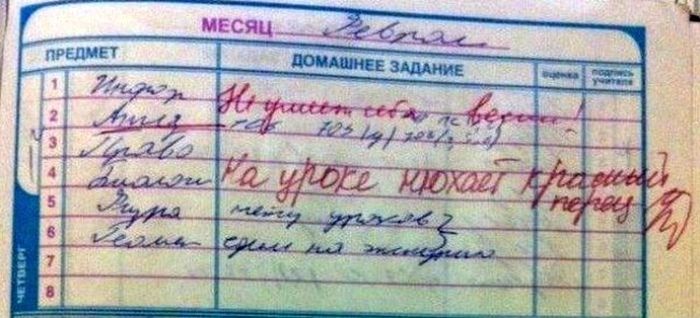 МЕСЯЦ Феврал
ПРЕДМЕТ ДОМАШНЕЕ ЗАДАНИЕ оценка подпись учителя
1 Инфор Не умеет себя вести!
2 Англ
3 Право
4 Биолог На уроке нюхает красный
перец
5 Физра нету уроков
6 Геомет
7
8
ЧЕТВЕРГ